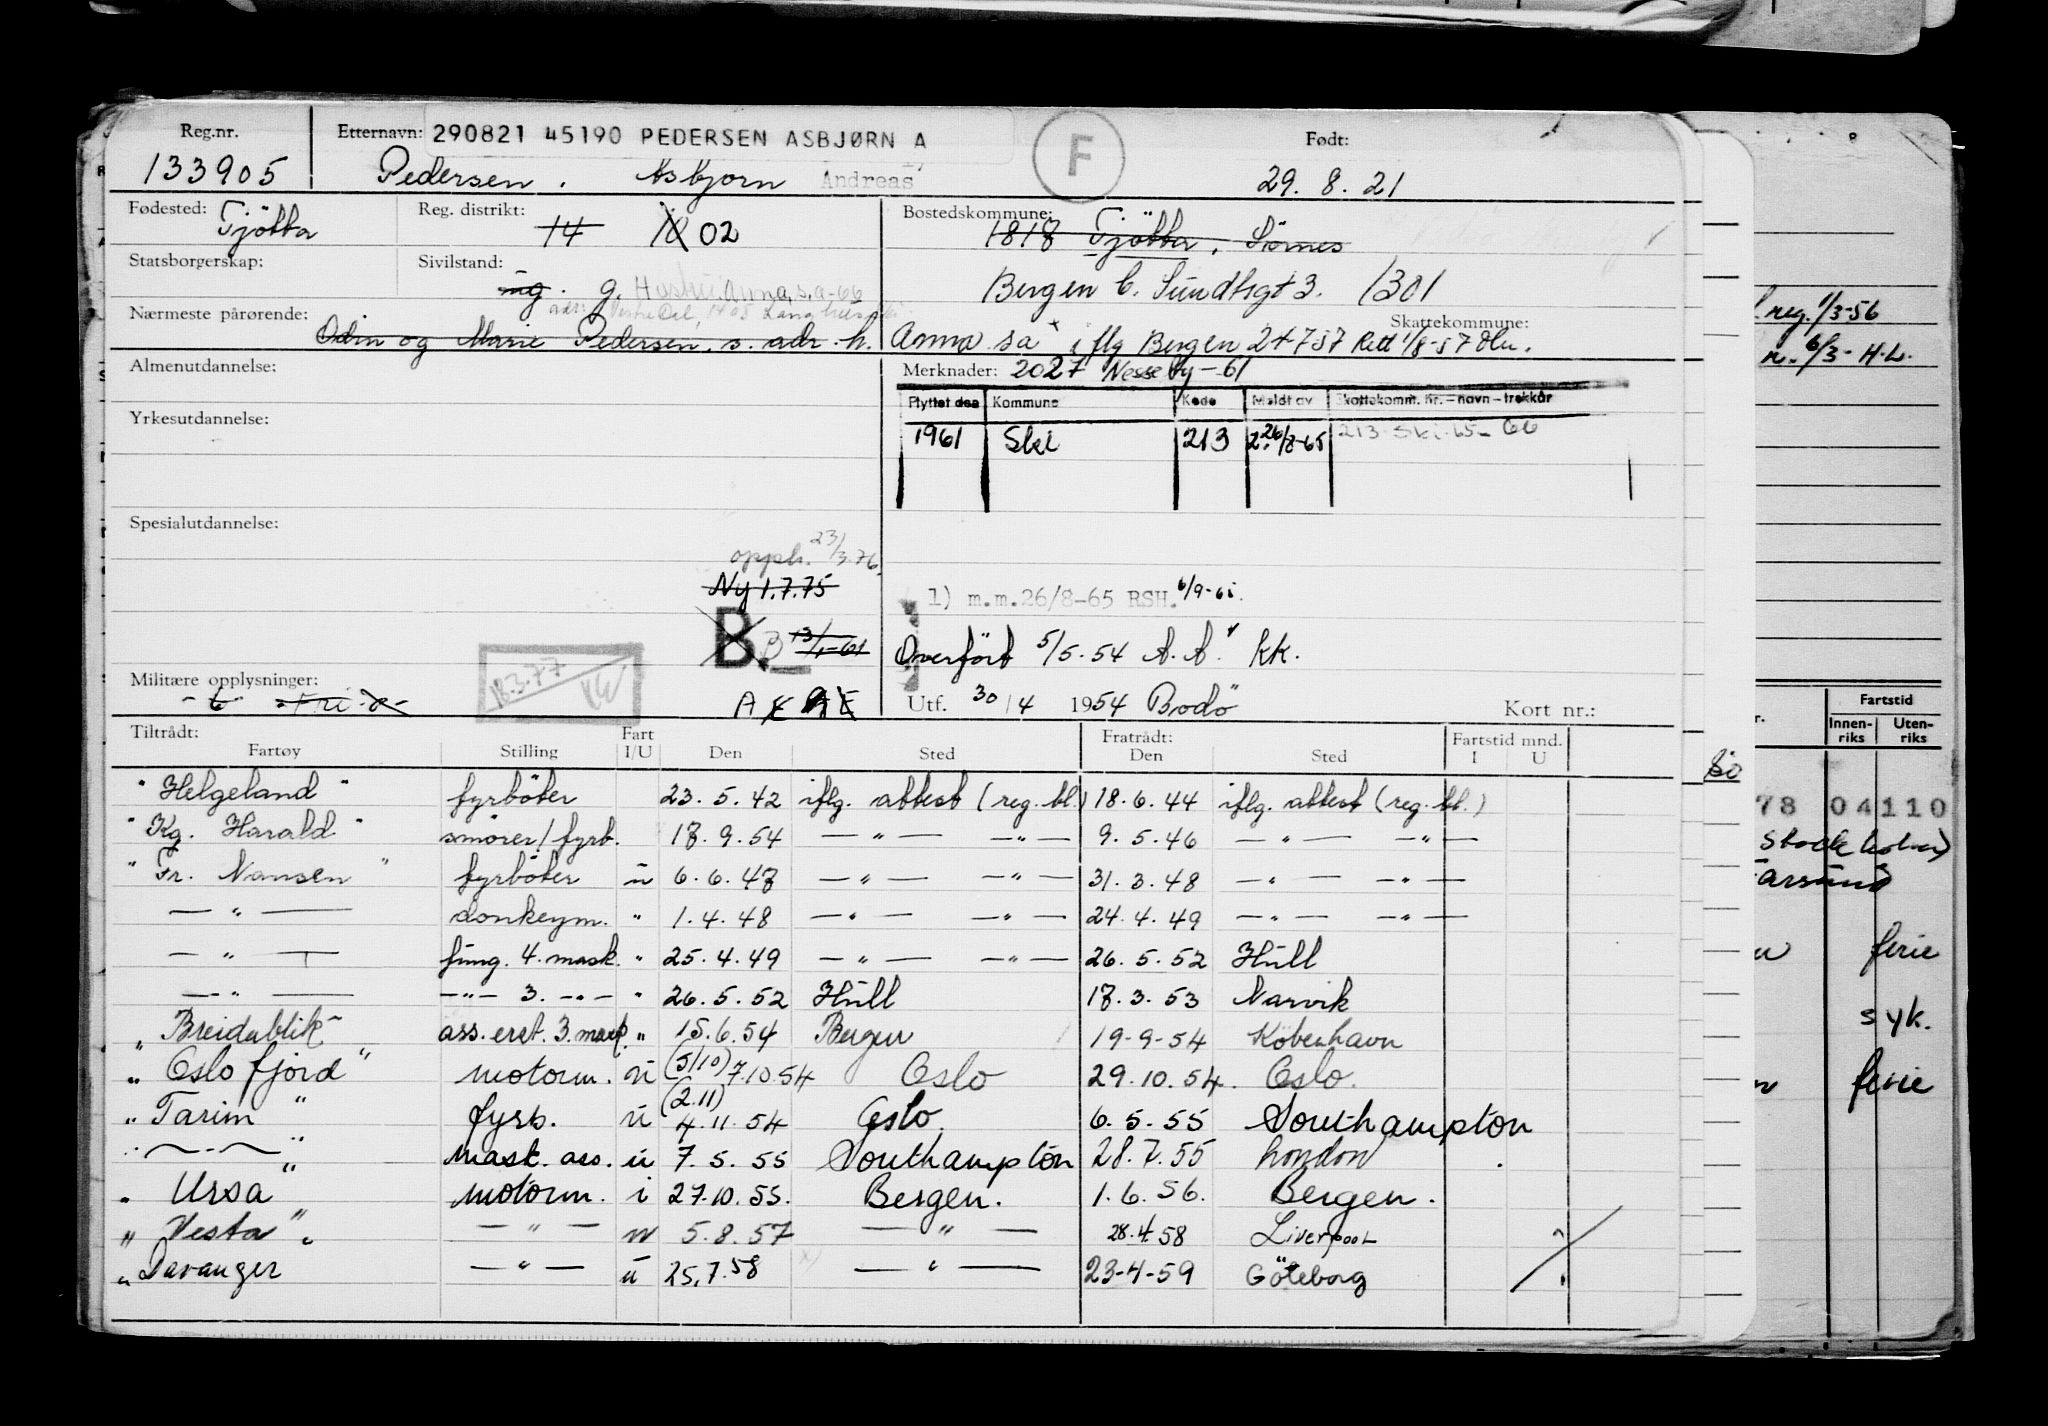 Reg.nr. Etternavn: 290821 45190 PEDERSEN ASBJØRN A F Født:
133905 Pedersen. Asbjørn Andreas 1) 29. 8. 21
Fødested: Tjötta Reg. distrikt: 14 02 Bostedskommune: 1818 Tjötta, Sörnes
Statsborgerskap: Sivilstand: ug. g. Hustru: Anna, s.a-66 Bergen C. Sundtsgt 3. 1301
Nærmeste pårørende: Skattekommune:
Odin og Marie Pedersen, s. adr. h. Anna sa iflg Bergen 24757 Rett 1/8-57
Almenutdannelse: Merknader: 2027 Nesseby-61
Flyttet dea Kommune Kode Meldt av Skattekomm. nr. - navn - trekkår
Yrkesutdannelse: 1961 Ski 213 26/8-65 213 Ski 65- 66
Spesialutdannelse:
opph. 23/3.76.
Ny 1.7.75
1) m.m.26/8-65 RSH. 6/9-65.
B B 13/1-61
Overfört 5/5.54 A.A. KK.
18.3.77
Militære opplysninger:
Utf. 30/4 1954 Bodö Kort nr.:
Tiltrådt: Fart Fratrådt: Fartstid mnd.
Fartøy Stilling I/U Den Sted Den Sted I U
"Helgeland" fyrböter 23. 5. 42 iflg. attest (reg. bl.) 18. 6. 44 iflg. attest (reg. bl.)
"Kg. Harald" smörer/fyrb. 17. 9. 54 — " — — " — 9. 5. 46 — " — — " —
"Fr. Nansen" fyrböter u 6. 6. 47 — " — — " — 31. 3. 48 — " — — " —
— " — donkeym. " 1. 4. 48 — " — — " — 24. 4. 49 — " — — " —
— " — fung. 4. mask. " 25. 4. 49 — " — — " — 26. 5. 52 Hull
— " — — " — 3. — " — " 26. 5. 52 Hull 17. 3. 53 Narvik
"Breidablik" ass. erst. 3. mask. " 15. 6. 54 Bergen 19-9-54 Köbenhavn
"Oslofjord" motorm. u (5/10) 7.10.54 Oslo 29.10.54. Oslo.
"Tarim" fyrb. u (2.11) 4.11.54 Oslo. 6. 5. 55 Southampton
— " — mask. ass. u 7. 5. 55 Southampton 28. 7. 55 London
"Ursa" motorm. i 27.10.55. Bergen. 1. 6. 56. Bergen.
"Vesta" — " — u 5. 8. 57 — " — 28.4.58 Liverpool
"Davanger — " — u 25.7.58 — " — 23-4-59 Göteborg
reg. 1/3-56
6/3- H.L.
Fartstid
Innen-riks Uten-riks
78 04110
Stockholm)
ferie
syk.
ferie